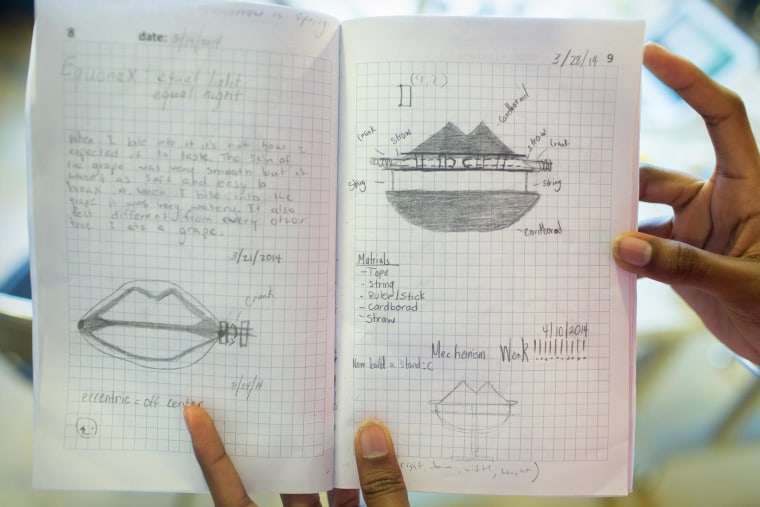 tomorrow is Spring.
8 date: 3/19/2014
Equonex: equal light
equal night
When I bite into it it's not how I
expected it to taste. The skin of
the grape was very smooth but it
was as soft and easy to
break in. When I bite into the
grape it was very watery. It also
felt different from every other
time I ate a grape.
3/21/2014
Crank
3/24/14
eccentric = off center
3/28/14 9
(1,2)
cardborad
crank
straw
straw
Crank
string
string
cardborad
Matrials
- Tape
- String
- Ruler/Stick
- cardborad
- Straw
4/10/2014
Mechanism Work !!!!!!!!!
Now build a stand :C
right, down, width, height)